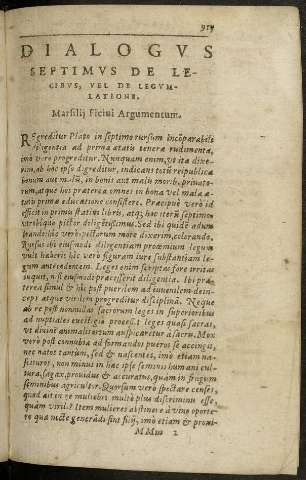 919
DIALOGVS
SEPTIMVS DE LE-
GIBVS, VEL DE LEGVM-
LATIONE.
Marsilij Ficini Argumentum.
REgreditur Plato in septimo rursum incōparabili
diligentia ad prima ætatis teneræ rudimenta,
imò verò progreditur. Nunquam enim, vt ita dixe-
rim, ab hoc ipso digreditur, indicans totū reipublicæ
bonum aut malū, in bonis aut malis morib. priuato-
rum, atque hos præterea omnes in bona vel mala æ-
tatis primæ educatione consistere. Præcipuè verò id
effecit in primi statim libri, atq; hoc iterū septimo
vtrobique pictor diligētissimus. Sed ibi quidē adum
brando, hîc verò pictorum more dixerim, colorando.
Rursus ibi eiusmodi diligentiam proœmium legum
vult haberi: hîc verò figuram iure substantiam le-
gum antecedentem. Leges enim scriptas fore irritas
nisi eiusmodi præcesserit diligentia. Ibi præ-
terea simul & hîc post puerilem ad iuuenilem dein-
ceps atque virilem progreditur disciplinā. Neque
ab re post nonnullas sacrorum leges in superioribus
ad nuptiales euestigio processit leges quasi sacras,
vt diuini animalis ortum auspicaretur à sacru. Mox
verò post connubia ad formandos pueros se accingit,
nec natos tantum, sed & nascentes, imò etiam na-
scituros, non minus in hac ipse seminis humani cul-
tura, sagax, prouidus & accuratus, quàm in frugum
seminibus agricultor. Quorsum verò spectare censes,
quàm viril.? Item mulieres abstinere à vino oporte-
re qua nocte generādi sint filij, imò etiam & proui-
MMm 2